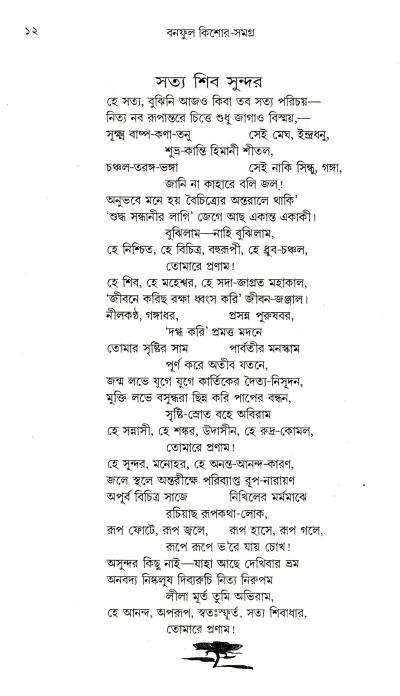 ১২ বনফুল কিশোর-সমগ্র
সত্য শিব সুন্দর
হে সত্য, বুঝিনি আজও কিবা তব সত্য পরিচয়—
নিত্য নব রূপান্তরে চিত্তে শুধু জাগাও বিস্ময়,—
সূক্ষ্ম বাষ্প-কণা-তনু সেই মেঘ, ইন্দ্রধনু,
শুভ্র-কান্তি হিমানী শীতল,
চঞ্চল-তরঙ্গ-ভঙ্গা সেই নাকি সিন্ধু, গঙ্গা,
জানি না কাহারে বলি জল!
অনুভবে মনে হয় বৈচিত্র্যের অন্তরালে থাকি'
'শুদ্ধ সন্ধানীর লাগি' জেগে আছ একান্ত একাকী।
বুঝিলাম—নাহি বুঝিলাম,
হে নিশ্চিত, হে বিচিত্র, বহুরূপী, হে ধ্রুব-চঞ্চল,
তোমারে প্রণাম!
হে শিব, হে মহেশ্বর, হে সদা-জাগ্রত মহাকাল,
'জীবনে করিছ রক্ষা ধ্বংস করি' জীবন-জঞ্জাল।
নীলকণ্ঠ, গঙ্গাধর, প্রসন্ন পুরুষবর,
'দগ্ধ করি' প্রমত্ত মদনে
তোমার সৃষ্টির সাম পার্বতীর মনস্কাম
পূর্ণ করে অতীব যতনে,
জন্ম লভে যুগে যুগে কার্তিকের দৈত্য-নিসূদন,
মুক্তি লভে বসুন্ধরা ছিন্ন করি পাপের বন্ধন,
সৃষ্টি-স্রোত বহে অবিরাম
হে সন্ন্যাসী, হে শঙ্কর, উদাসীন, হে রুদ্র-কোমল,
তোমারে প্রণাম!
হে সুন্দর, মনোহর, হে অনন্ত-আনন্দ-কারণ,
জলে স্থলে অন্তরীক্ষে পরিব্যাপ্ত রূপ-নারায়ণ
অপূর্ব বিচিত্র সাজে নিখিলের মর্মমাঝে
রচিয়াছ রূপকথা-লোক,
রূপ ফোটে, রূপ জ্বলে, রূপ হাসে, রূপ গলে,
রূপে রূপে ভ'রে যায় চোখ!
অসুন্দর কিছু নাই—যাহা আছে দেখিবার ভ্রম
অনবদ্য নিষ্কলুষ দিব্যরুচি নিত্য নিরুপম
লীলা মূর্ত তুমি অভিরাম,
হে আনন্দ, অপরূপ, স্বতঃস্ফূর্ত, সত্য শিবাধার,
তোমারে প্রণাম!